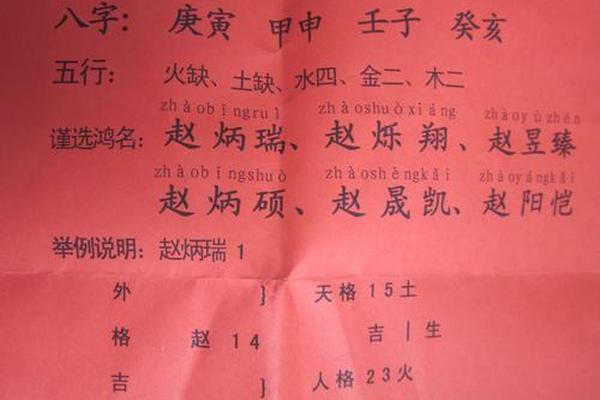 八字: 庚寅 甲申 壬子 癸亥
五行: 火缺、土缺、水四、金二、木二
zhàobǐngruì zhàoshuòxiáng zhàoyùzhēn
谨选鸿名: 赵炳瑞、赵烁翔、赵昱臻
zhàobǐngshuò zhàoshèngkǎi zhàoyángkǎi
赵炳硕、赵晟凯、赵阳恺
举例说明: 赵炳瑞 1
外 } 天格 15土
格 赵 14 吉 | 生
吉 } 人格 23火